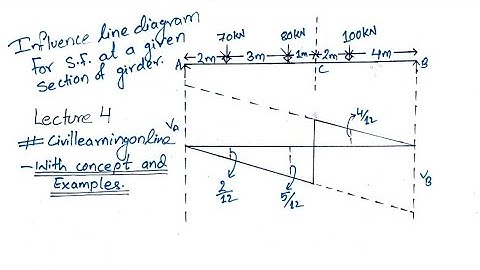 Influence line diagram
for S.F. at a given
section of girder.
Lecture 4
# Civillearningonline
- With concept and
Examples.
70KN
80KN
100KN
A
2m
3m
1m
2m
4m
B
C
VA
4/12
2/12
5/12
VB